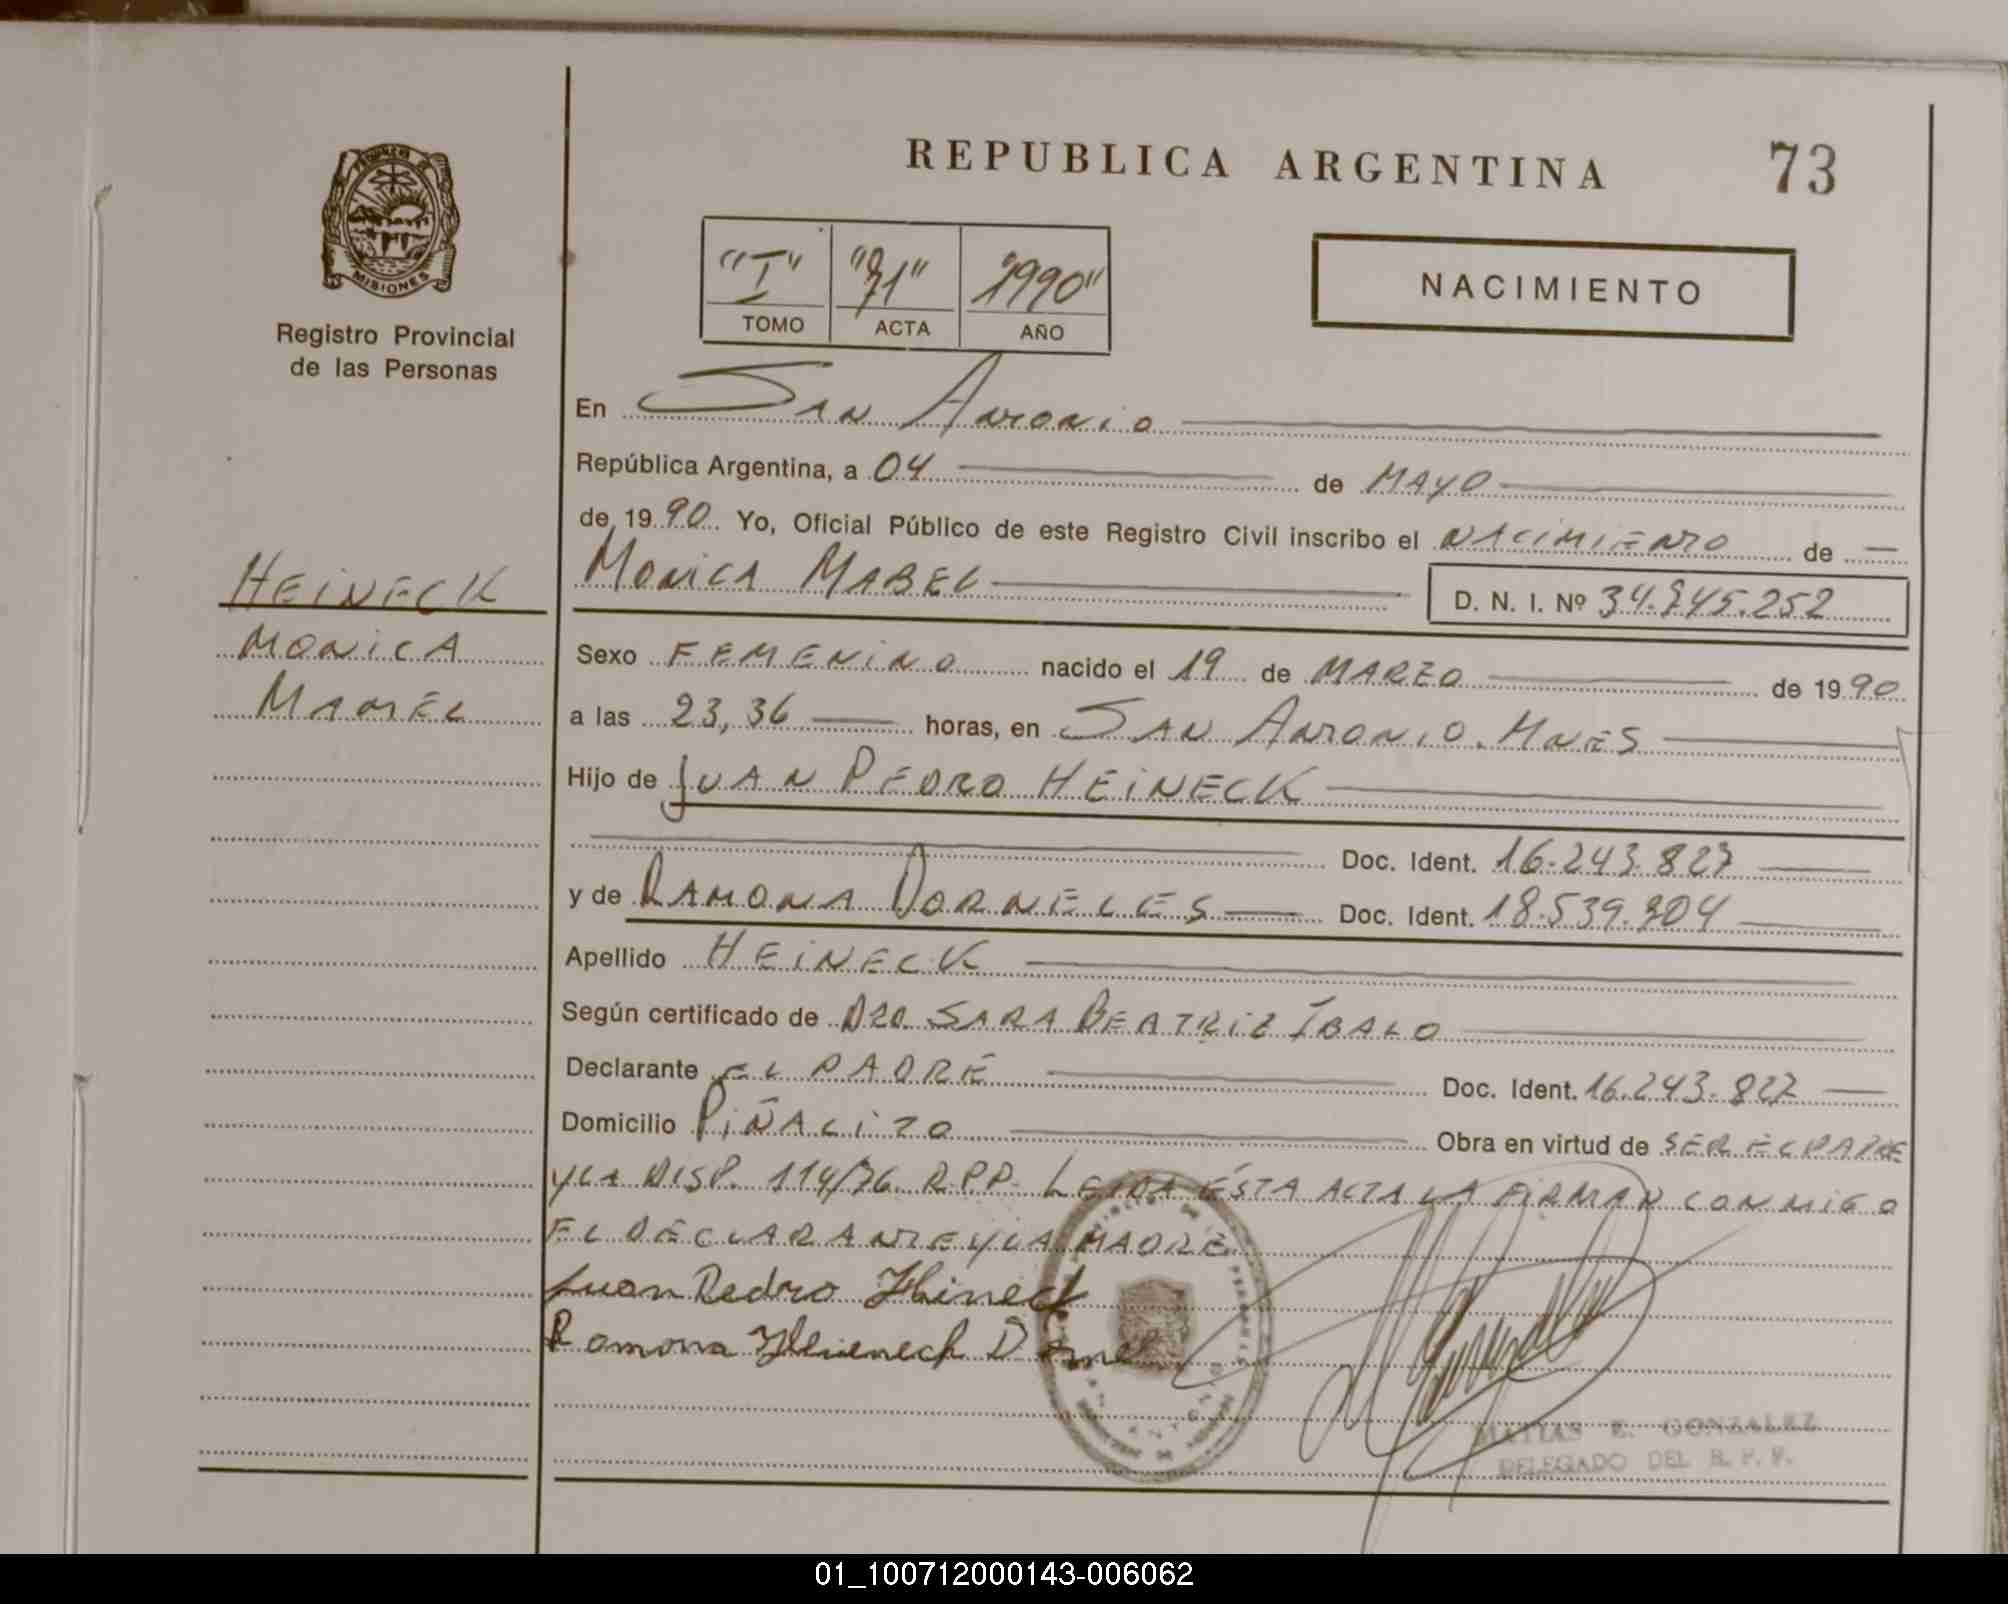 REPUBLICA ARGENTINA
73
PROVINCIA DE
MISIONES
Registro Provincial
de las Personas
"I" "71" "1990"
TOMO ACTA AÑO
NACIMIENTO
En SAN ANTONIO
República Argentina, a 04 de MAYO
de 1990 Yo, Oficial Público de este Registro Civil inscribo el NACIMIENTO de
MONICA MABEL
D. N. I. Nº 34.745.252
HEINECK
MONICA
MABEL
Sexo FEMENINO nacido el 19 de MARZO de 1990
a las 23,36 horas, en SAN ANTONIO. MNES
Hijo de JUAN PEDRO HEINECK
Doc. Ident. 16.243.827
y de RAMONA DORNELES Doc. Ident. 18.539.304
Apellido HEINECK
Según certificado de DRA. SARA BEATRIZ IBALO
Declarante EL PADRE Doc. Ident. 16.243.827
Domicilio PIÑALITO Obra en virtud de SER EL PADRE
Y LA DISP. 114/76. R.P.P. LEIDA ÉSTA ACTA LA FIRMAN CONMIGO
EL DECLARANTE Y LA MADRE
Juan Pedro Heineck
Ramona Heieneck Dorne
MATIAS E. GONZALEZ
DELEGADO DEL R. P. P.
01_100712000143-006062